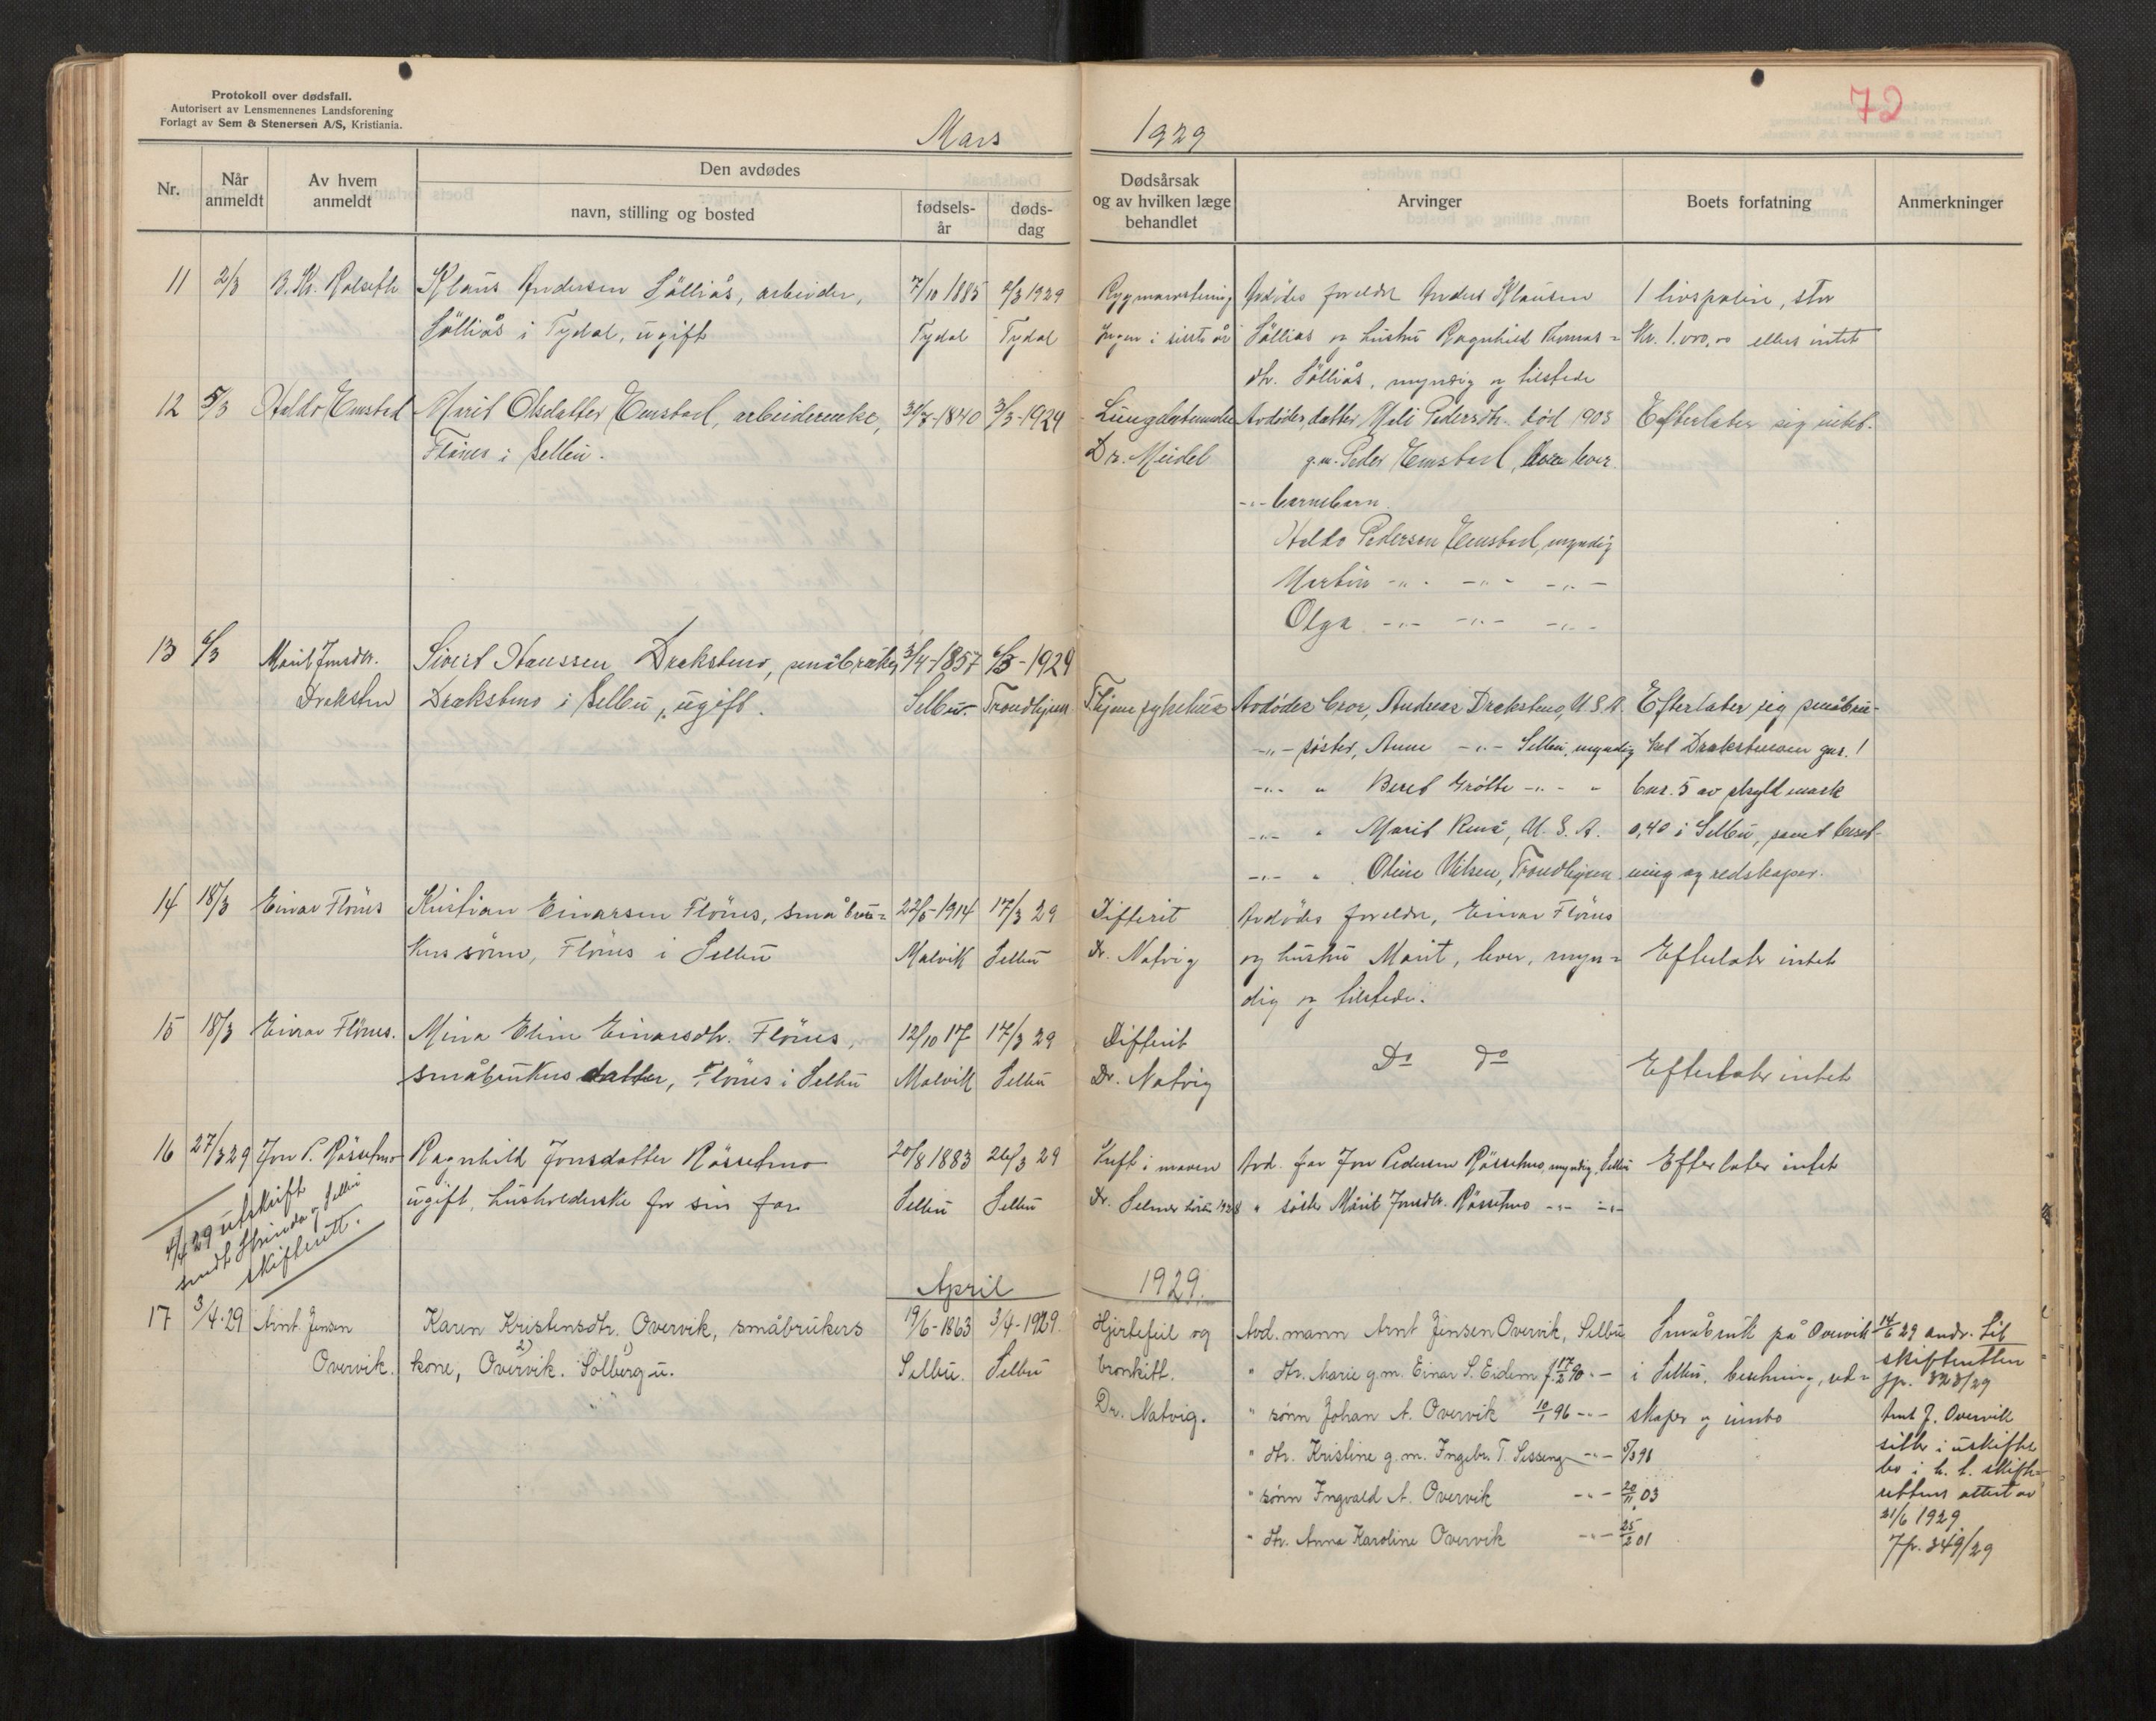 Protokoll over dødsfall.
Autorisert av Lensmennenes Landsforening
Forlagt av Sem & Stenersen A/S, Kristiania.
Mars 1929
72
Nr.
Når anmeldt
Av hvem anmeldt
Den avdødes
navn, stilling og bosted
fødsels-år
døds-dag
Dødsårsak og av hvilken læge behandlet
Arvinger
Boets forfatning
Anmerkninger
11 2/3 B. Kr. Rolseth Klaus Andersen Sölliås, arbeider, 7/10 1885 2/3 1929 Avdødes foreldre Anders Klausen 1 livspolise, stor
Sölliås i Tydal, ugift Tydal Tydal Ingen i siste år Sölliås og hustru Ragnhild Thomas- Kr. 1.000,00 ellers intet
dtr. Sölliås, myndig og tilstede
12 5/3 Haldo Emstad Marit Olsdatter Emstad, arbeiderenke, 31/7-1840 3/3-1929 Lungebetennelse Avdødes datter Mali Pedersdtr. död 1903 Efterlater sig intet.
Flönes i Selbu. Dr. Meidel g.m. Peder Emstad, lever
-"- barnebarn
Haldo Pedersen Emstad, myndig
Martin -"- -"- -"-
Olga -"- -"- -"-
13 6/3 Marit Jonsdtr. Sivert Hanssen Drakstmo, småbruker 3/4-1857 6/3-1929
Drakstmo i Selbu, ugift. Selbu. Trondhjem T.hjems sykehus Avdødes bror, Andreas Drakstmo, U.S.A. Efterlater sig småbru-
-"- søster, Anne -"- Selbu, myndig ket Drakstmoen gnr. 1
-"- " Beret Grøtte -"- " bnr. 5 av skyld mark
-"- " Marit Renå, U.S.A. 0,40 i Selbu, samt beset-
-"- " Oline Nilsen, Trondhjem ning og redskaper.
14 18/3 Einar Flönes Kristian Einarsen Flönes, småbru- 22/5-1914 17/3 29 Difterit Avdødes foreldre, Einar Flönes
kers sönn, Flönes i Selbu Malvik Selbu Dr. Natvig og hustru Marit, lever, myn- Efterlater intet
dig og tilstede.
15 18/3 Einar Flönes. Mina Eline Einarsdtr. Flönes, 12/10 17 17/3 29 Difterit Do do
småbrukers datter, Flönes i Selbu Malvik Selbu Dr. Natvig Efterlater intet
16 27/3 29 Jon P. Rösetmo Ragnhild Jonsdatter Rössetmo 20/8 1883 26/3 29 Kreft i maven Avd. far Jon Pedersen Rössetmo, myndig, Selbu Efterlater intet
ugift, husholderske for sin far Selbu Selbu Dr. Selmer 1928 " søster Marit Jonsdtr. Rössetmo -"- -"-
4/4 29 utskrift
sendt Strinda og Selbu
skifterett.
April 1929.
17 3/4.29 Arnt Jensen Karen Kristensdtr. Overvik, småbrukers 19/6-1863 3/4-1929. Hjertefeil og Avd. mann Arnt Jensen Overvik, Selbu Småbruk på Overvik 14/6 29 andr. til
Overvik. kone, Overvik. Solberg u. Selbu. Selbu bronkitt. " dtr. Marie g.m. Einar S. Eidem f. 17/2 90 -"- i Selbu, besetning, red- skifteretten
2) 1)
Jp. 323/29
Dr. Natvig. " sønn Johan A. Overvik 10/1 96 -"- skaper og innbo Arnt J. Overvik
" dtr. Kristine g.m. Ingebr. T. Sesseng -"- 5/3 98 sitter i uskifte
bo i h. t. skifte-
" sønn Ingvald A. Overvik -"- 20/11 03 rettens attest av
" dtr. Anna Karoline Overvik -"- 25/2 01 21/6 1929
Jp. 349/29